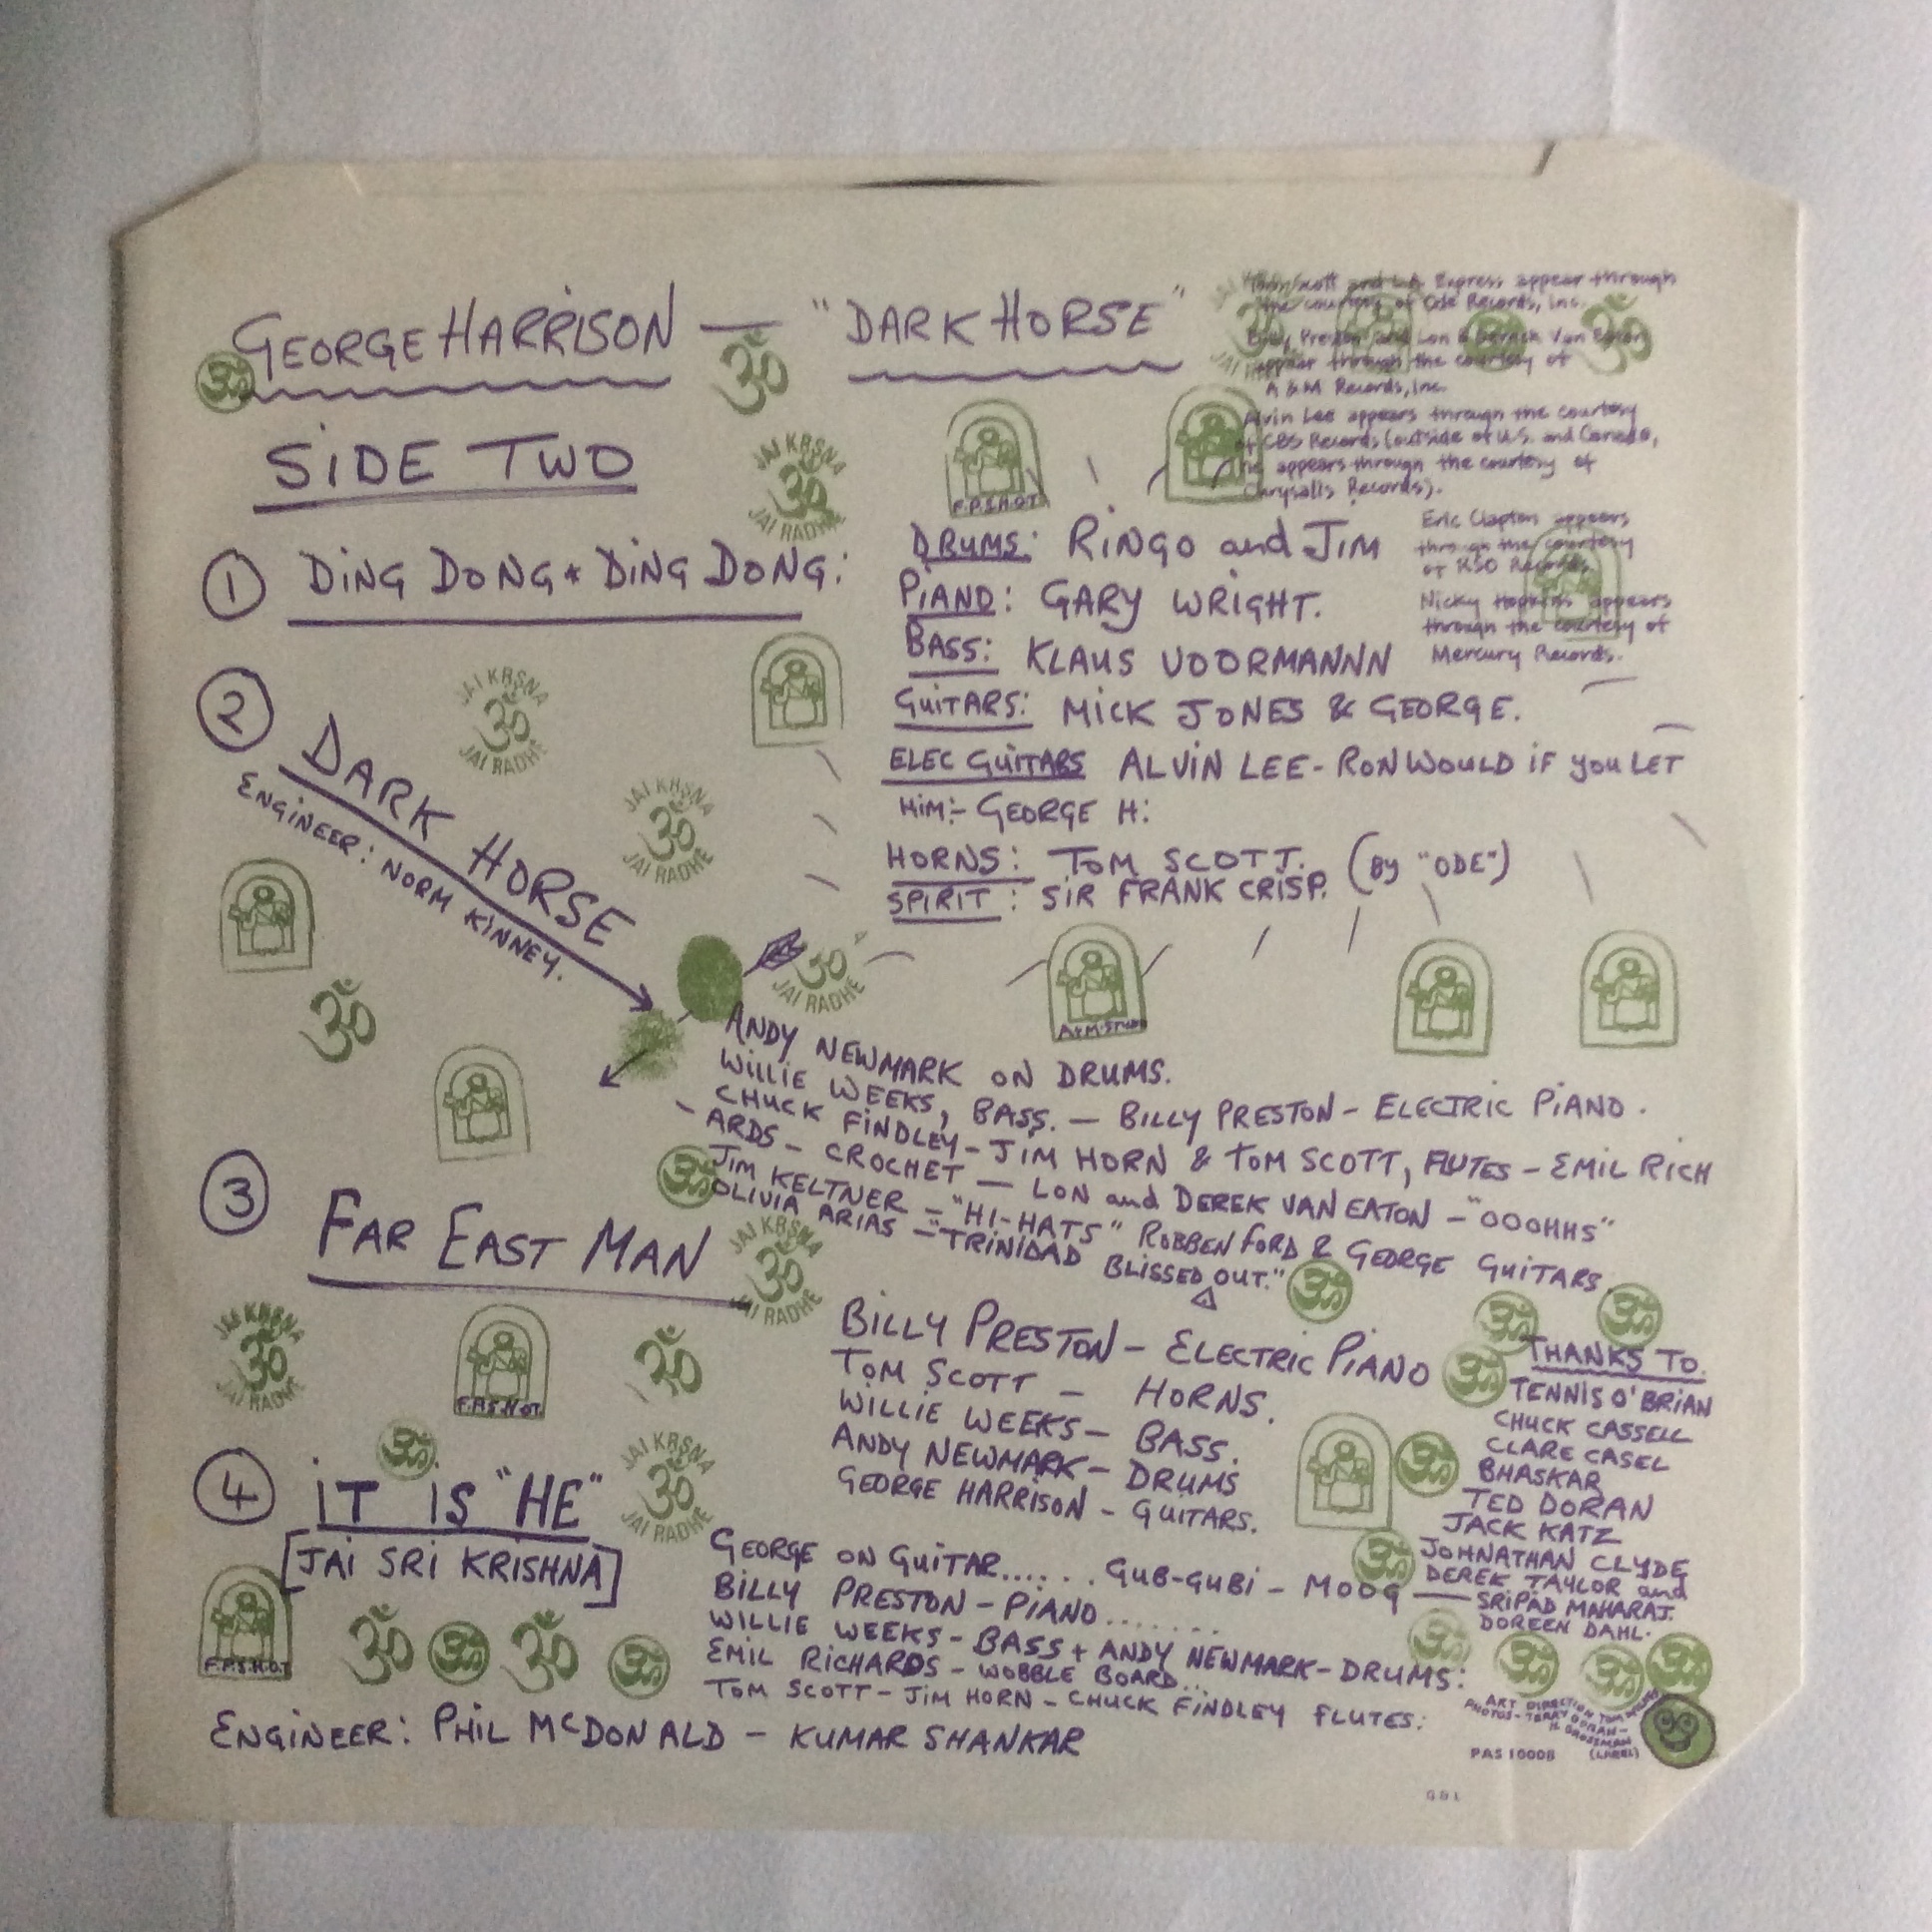 GEORGE HARRISON — "DARK HORSE"
SIDE TWO
Tom Scott and L.A. Express appear through
the courtesy of Ode Records, Inc.
Billy Preston and Lon & Derrek Van Eaton
appear through the courtesy of
A & M Records, Inc.
Alvin Lee appears through the courtesy
of CBS Records (outside of U.S. and Canada,
he appears through the courtesy of
Chrysalis Records).
Eric Clapton appears
through the courtesy
of RSO Records.
Nicky Hopkins appears
through the courtesy of
Mercury Records.
① DING DONG * DING DONG:
DRUMS: RINGO and JIM
PIANO: GARY WRIGHT.
BASS: KLAUS VOORMANNN
GUITARS: MICK JONES & GEORGE.
ELEC GUITARS ALVIN LEE - RON WOULD IF YOU LET
HIM:- GEORGE H:
HORNS: TOM SCOTT. (BY "ODE")
SPIRIT: SIR FRANK CRISP.
② DARK HORSE
ENGINEER: NORM KINNEY.
ANDY NEWMARK ON DRUMS.
WILLIE WEEKS, BASS. — BILLY PRESTON - ELECTRIC PIANO.
CHUCK FINDLEY - JIM HORN & TOM SCOTT, FLUTES - EMIL RICH
- ARDS - CROCHET — LON and DEREK VAN EATON - "OOOHHS"
JIM KELTNER - "HI-HATS" ROBBEN FORD & GEORGE GUITARS.
OLIVIA ARIAS - "TRINIDAD BLISSED OUT."
③ FAR EAST MAN
BILLY PRESTON - ELECTRIC PIANO
TOM SCOTT - HORNS.
WILLIE WEEKS - BASS.
ANDY NEWMARK - DRUMS
GEORGE HARRISON - GUITARS.
④ IT IS "HE"
[JAI SRI KRISHNA]
GEORGE ON GUITAR...... GUB-GUBI - MOOG
BILLY PRESTON - PIANO.......
WILLIE WEEKS - BASS + ANDY NEWMARK - DRUMS:
EMIL RICHARDS - WOBBLE BOARD...
TOM SCOTT - JIM HORN - CHUCK FINDLEY FLUTES:
ENGINEER: PHIL McDONALD - KUMAR SHANKAR
THANKS TO.
TENNIS O'BRIAN
CHUCK CASSELL
CLARE CASEL
BHASKAR
TED DORAN
JACK KATZ
JOHNATHAN CLYDE
DEREK TAYLOR and
SRIPAD MAHARAJ.
DOREEN DAHL.
ART DIRECTION TOM
PHOTOS - TERRY DORAN -
H. GROSSMAN
(LABEL)
PAS 10008
JAI KRSNA
ॐ
JAI RADHE
JAI KRSNA
ॐ
JAI RADHE
JAI KRSNA
ॐ
JAI RADHE
ॐ
JAI RADHE
JAI KRSNA
ॐ
JAI RADHE
JAI KRSNA
ॐ
JAI RADHE
JAI KRSNA
ॐ
JAI RADHE
F.P.S.H.O.T.
A&M STUDIO
F.P.S.H.O.T.
F.P.S.H.O.T